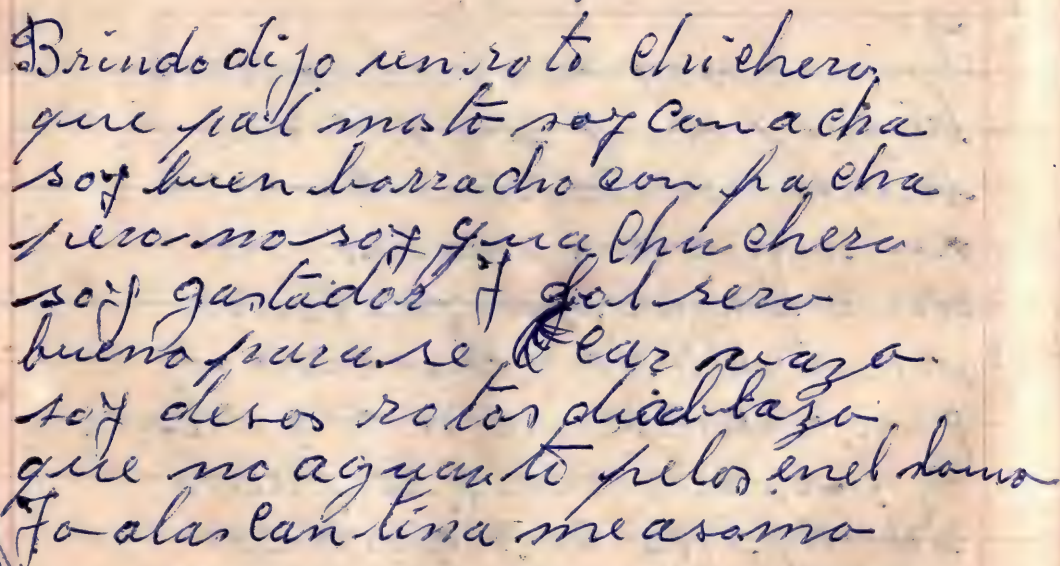 Brindo dijo un roto chichero
que pal mosto soy con acha
soy buen borracho con pacha
pero no soy guachuchero
soy gastador y
bueno para se car vazo
soy desos rotos diablazo
que no aguanto pelos en el lomo
Yo a las cantina me asomo